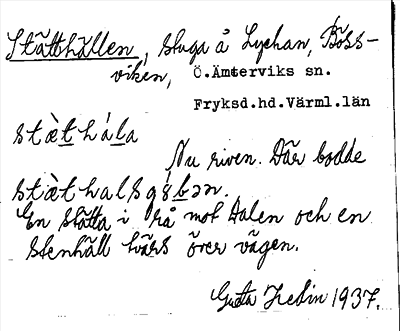 Stätthällen, stuga å Lychan, Böss-
viken, Ö.Ämterviks sn.
Fryksd.hd.Värml.län
stæ̀t hála
Nu riven. Där bodde
stæ̀thalsgúbən.
En stätta i rå mot Dalen och en
stenhäll tvärs över vägen.
Gusta Fredin 1937.